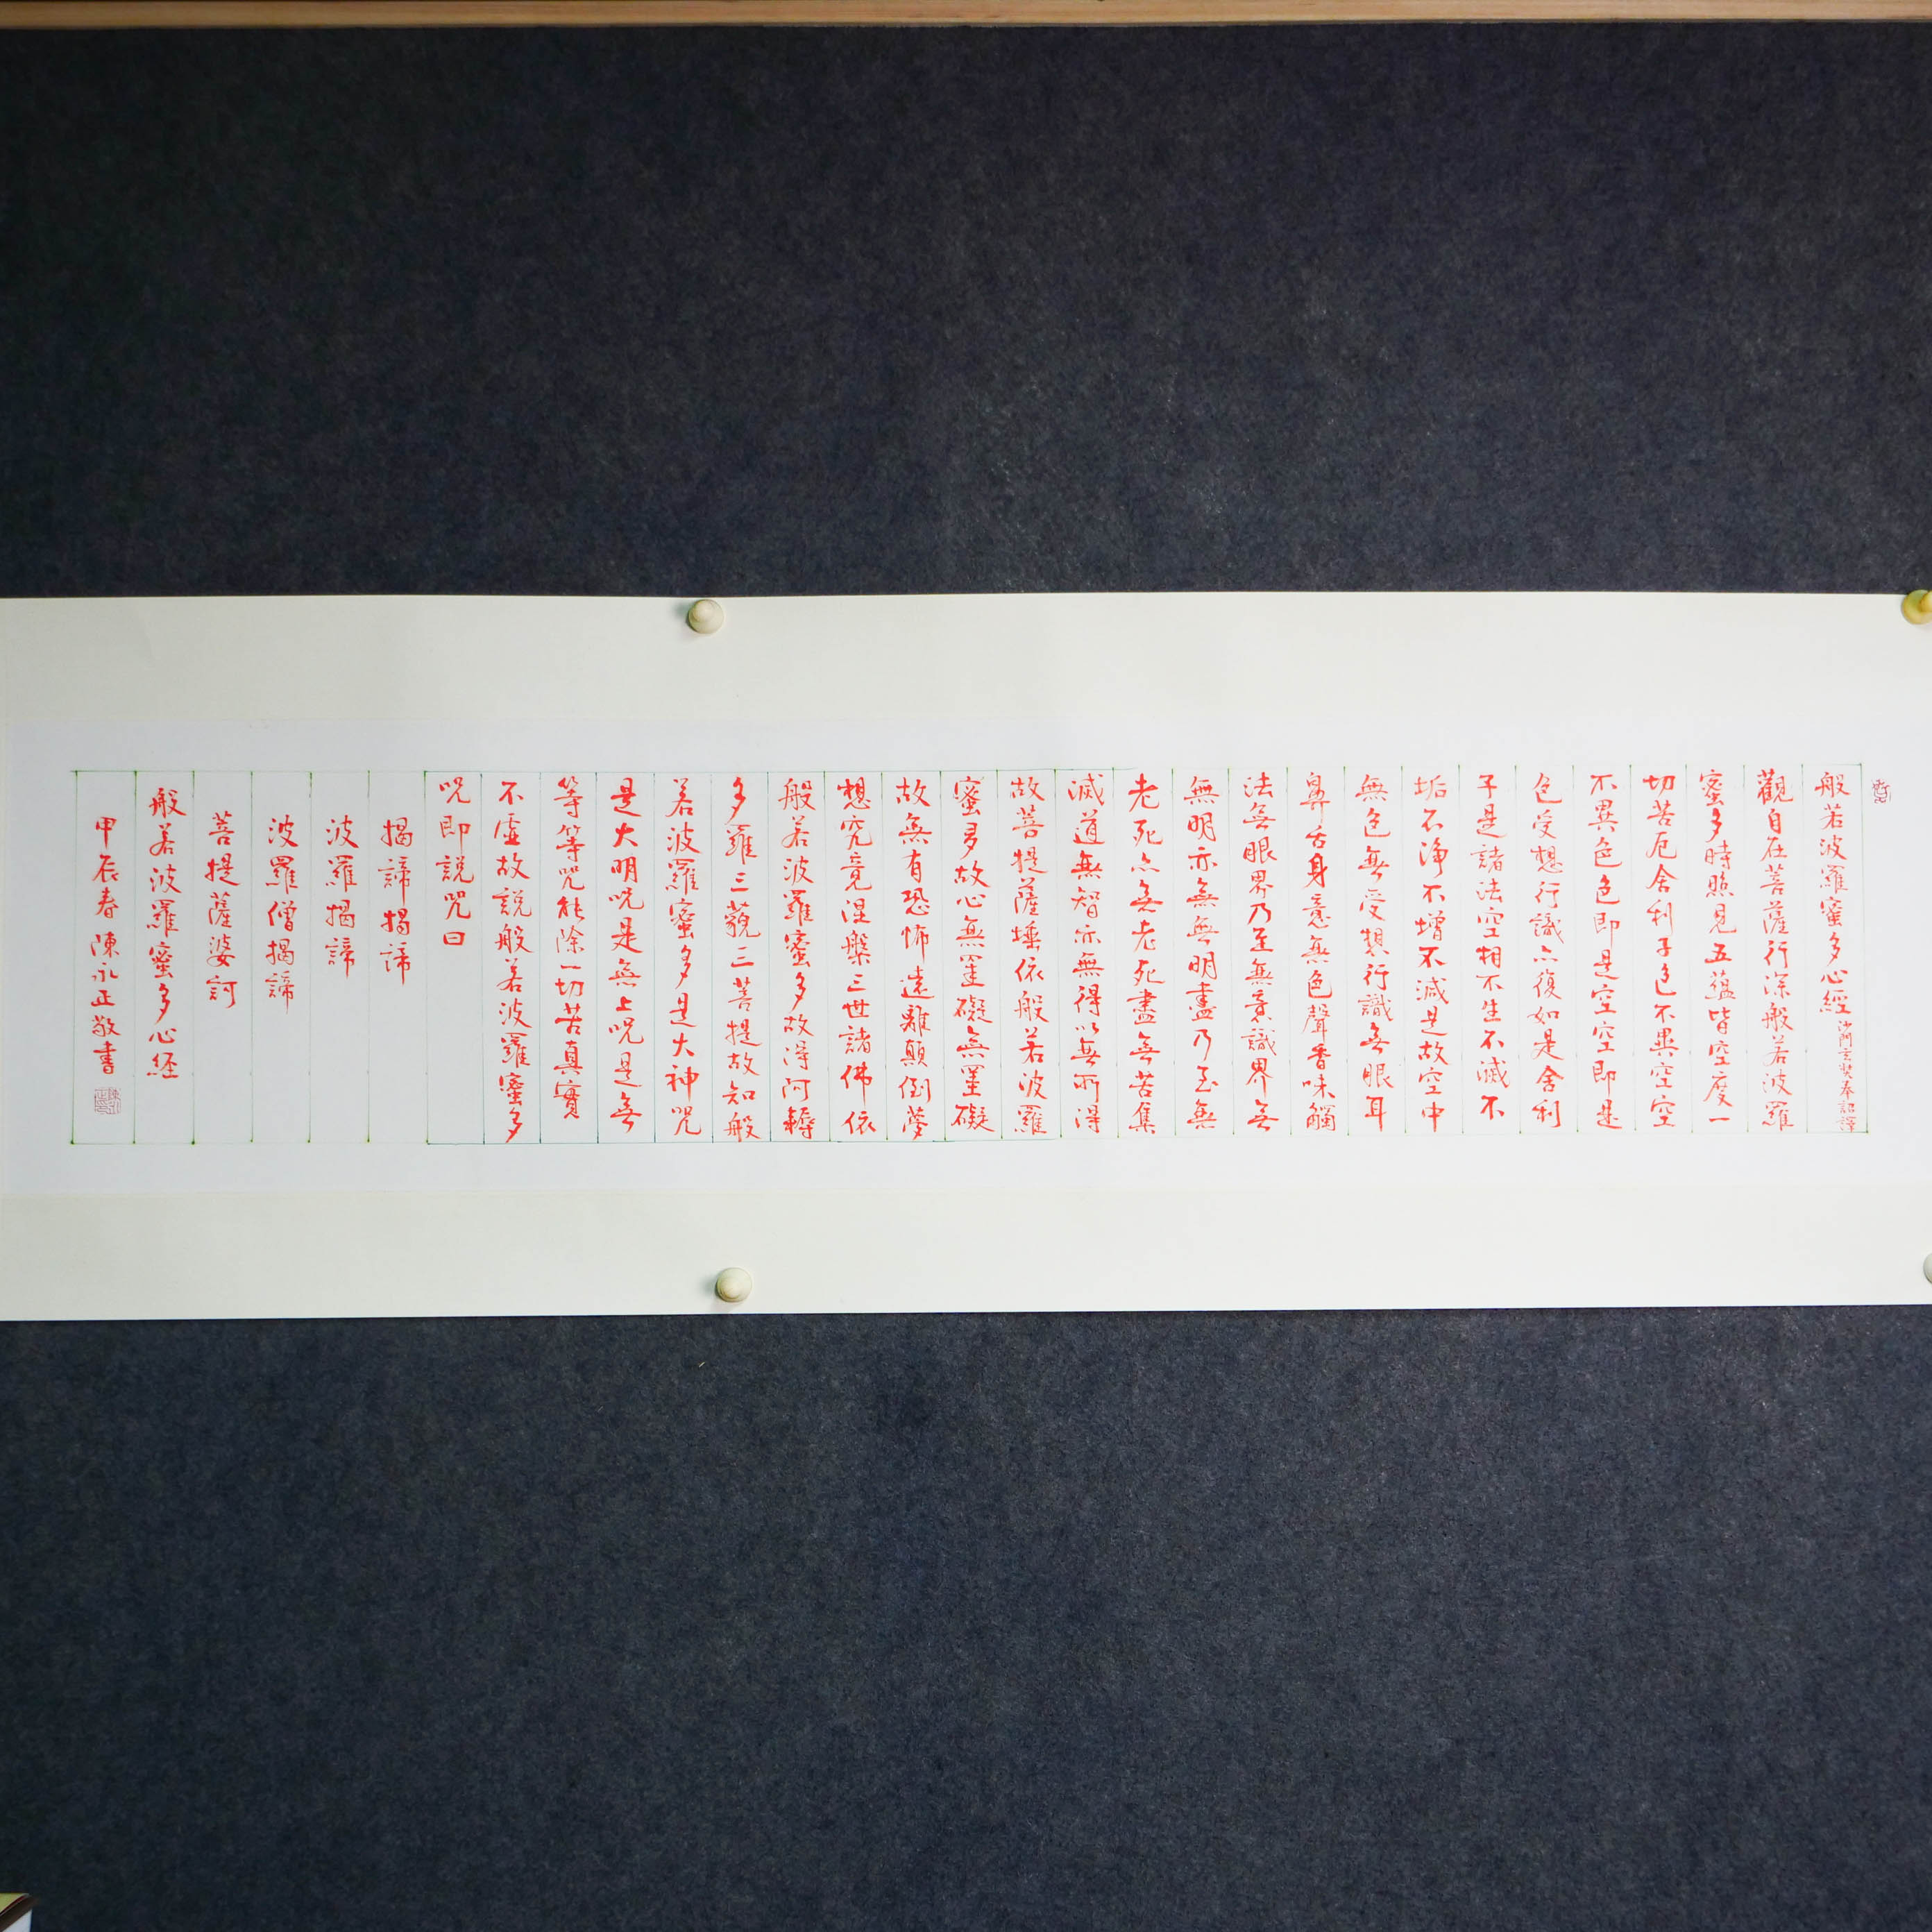 般若波羅蜜多心經 沙門玄奘奉詔譯
觀自在菩薩行深般若波羅
蜜多時照見五蘊皆空度一
切苦厄舍利子色不異空空
不異色色即是空空即是
色受想行識亦復如是舍利
子是諸法空相不生不滅不
垢不淨不增不減是故空中
無色無受想行識無眼耳
鼻舌身意無色聲香味觸
法無眼界乃至無意識界無
無明亦無無明盡乃至無
老死亦無老死盡無苦集
滅道無智亦無得以無所得
故菩提薩埵依般若波羅
蜜多故心無罣礙無罣礙
故無有恐怖遠離顛倒夢
想究竟涅槃三世諸佛依
般若波羅蜜多故得阿耨
多羅三藐三菩提故知般
若波羅蜜多是大神咒
是大明咒是無上咒是無
等等咒能除一切苦真實
不虛故說般若波羅蜜多
咒即說咒曰
揭諦揭諦
波羅揭諦
波羅僧揭諦
菩提薩婆訶
般若波羅蜜多心經
甲辰春陳永正敬書